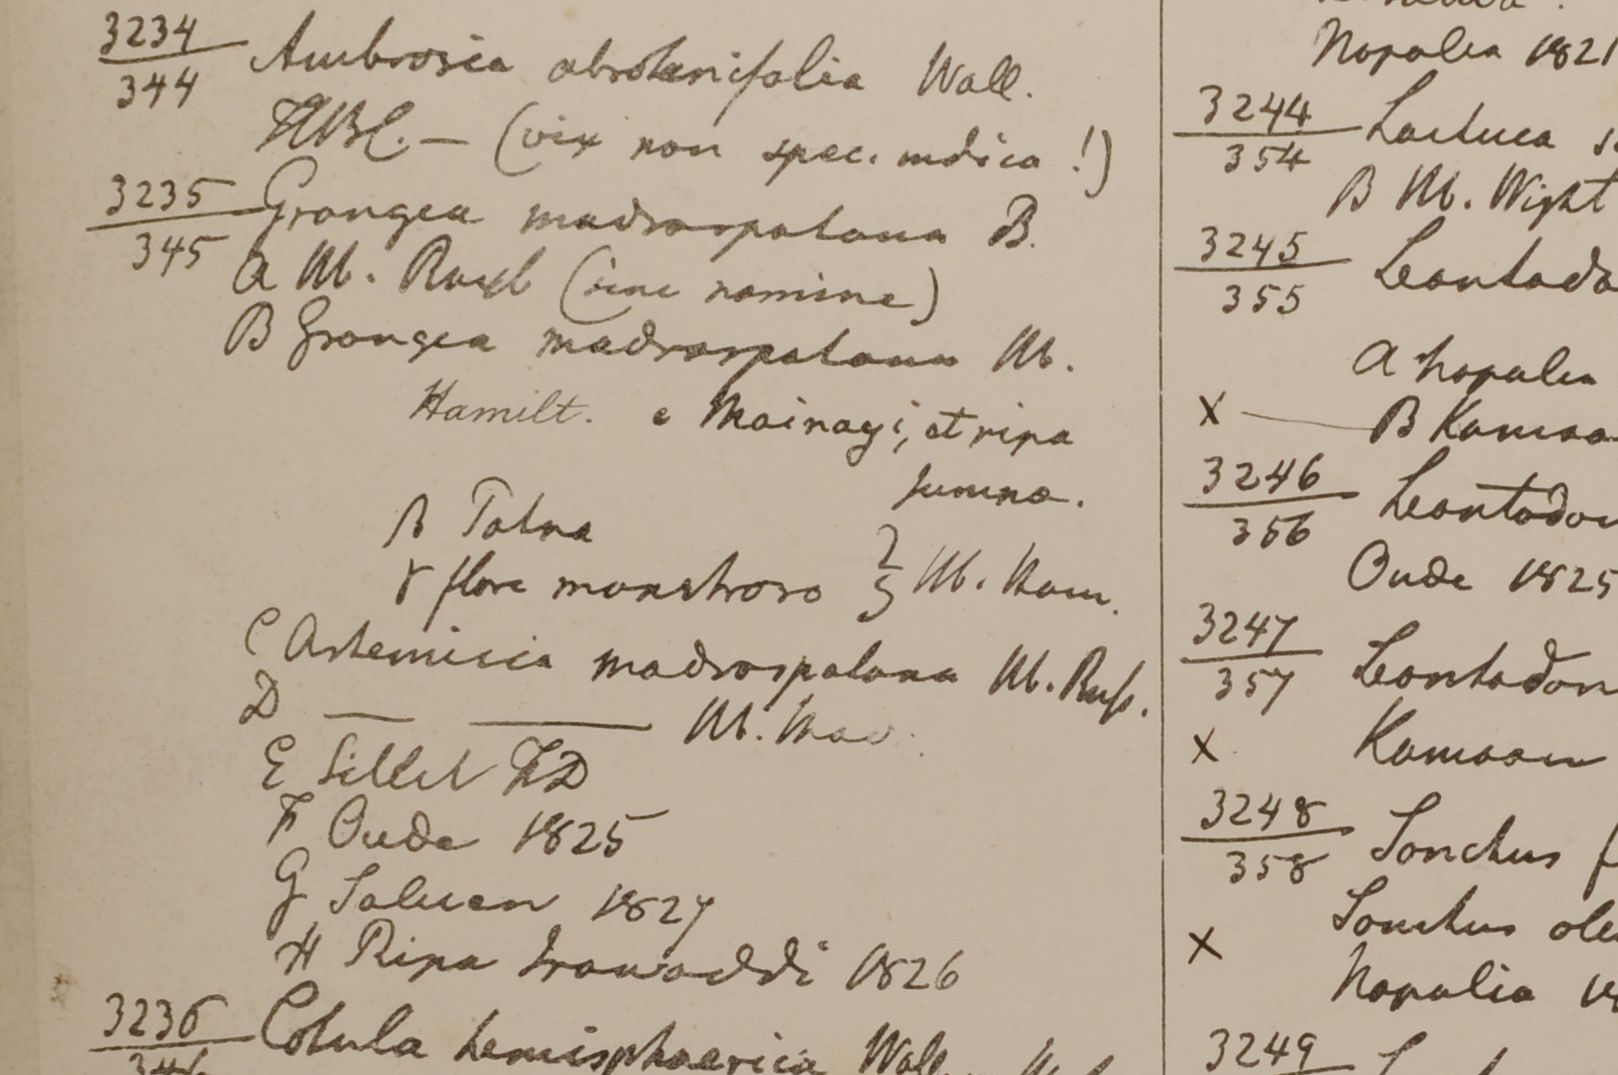 3234
344
Ambrosia abrotanifolia Wall.
HBC. — (vix non spec. indica!)
3235
345
Grangea madraspatana B.
A Hb. Roxb (sine nomine)
B Grangea madraspatana Hb.
Hamilt. e Mainagi, et ripa
Jumna.
β Patna
γ flore monstroso } Hb. Ham.
C Artemisia madraspatana Hb. Russ.
D — — Hb. Mad.
E Sillet FD
F Oude 1825
G Saluen 1827
H Ripa Irawaddi 1826
3236
346
Cotula hemisphaerica Wall.
Napalia 1821
3244
354
Lactuca
B Hb. Wight
3245
355
Leontodo
A Napalia
x — B Kamaon
3246
356
Leontodon
Oude 1825
3247
357
Leontodon
x Kamaon
3248
358
Sonchus f
Sonchus ole
x Napalia 18
3249